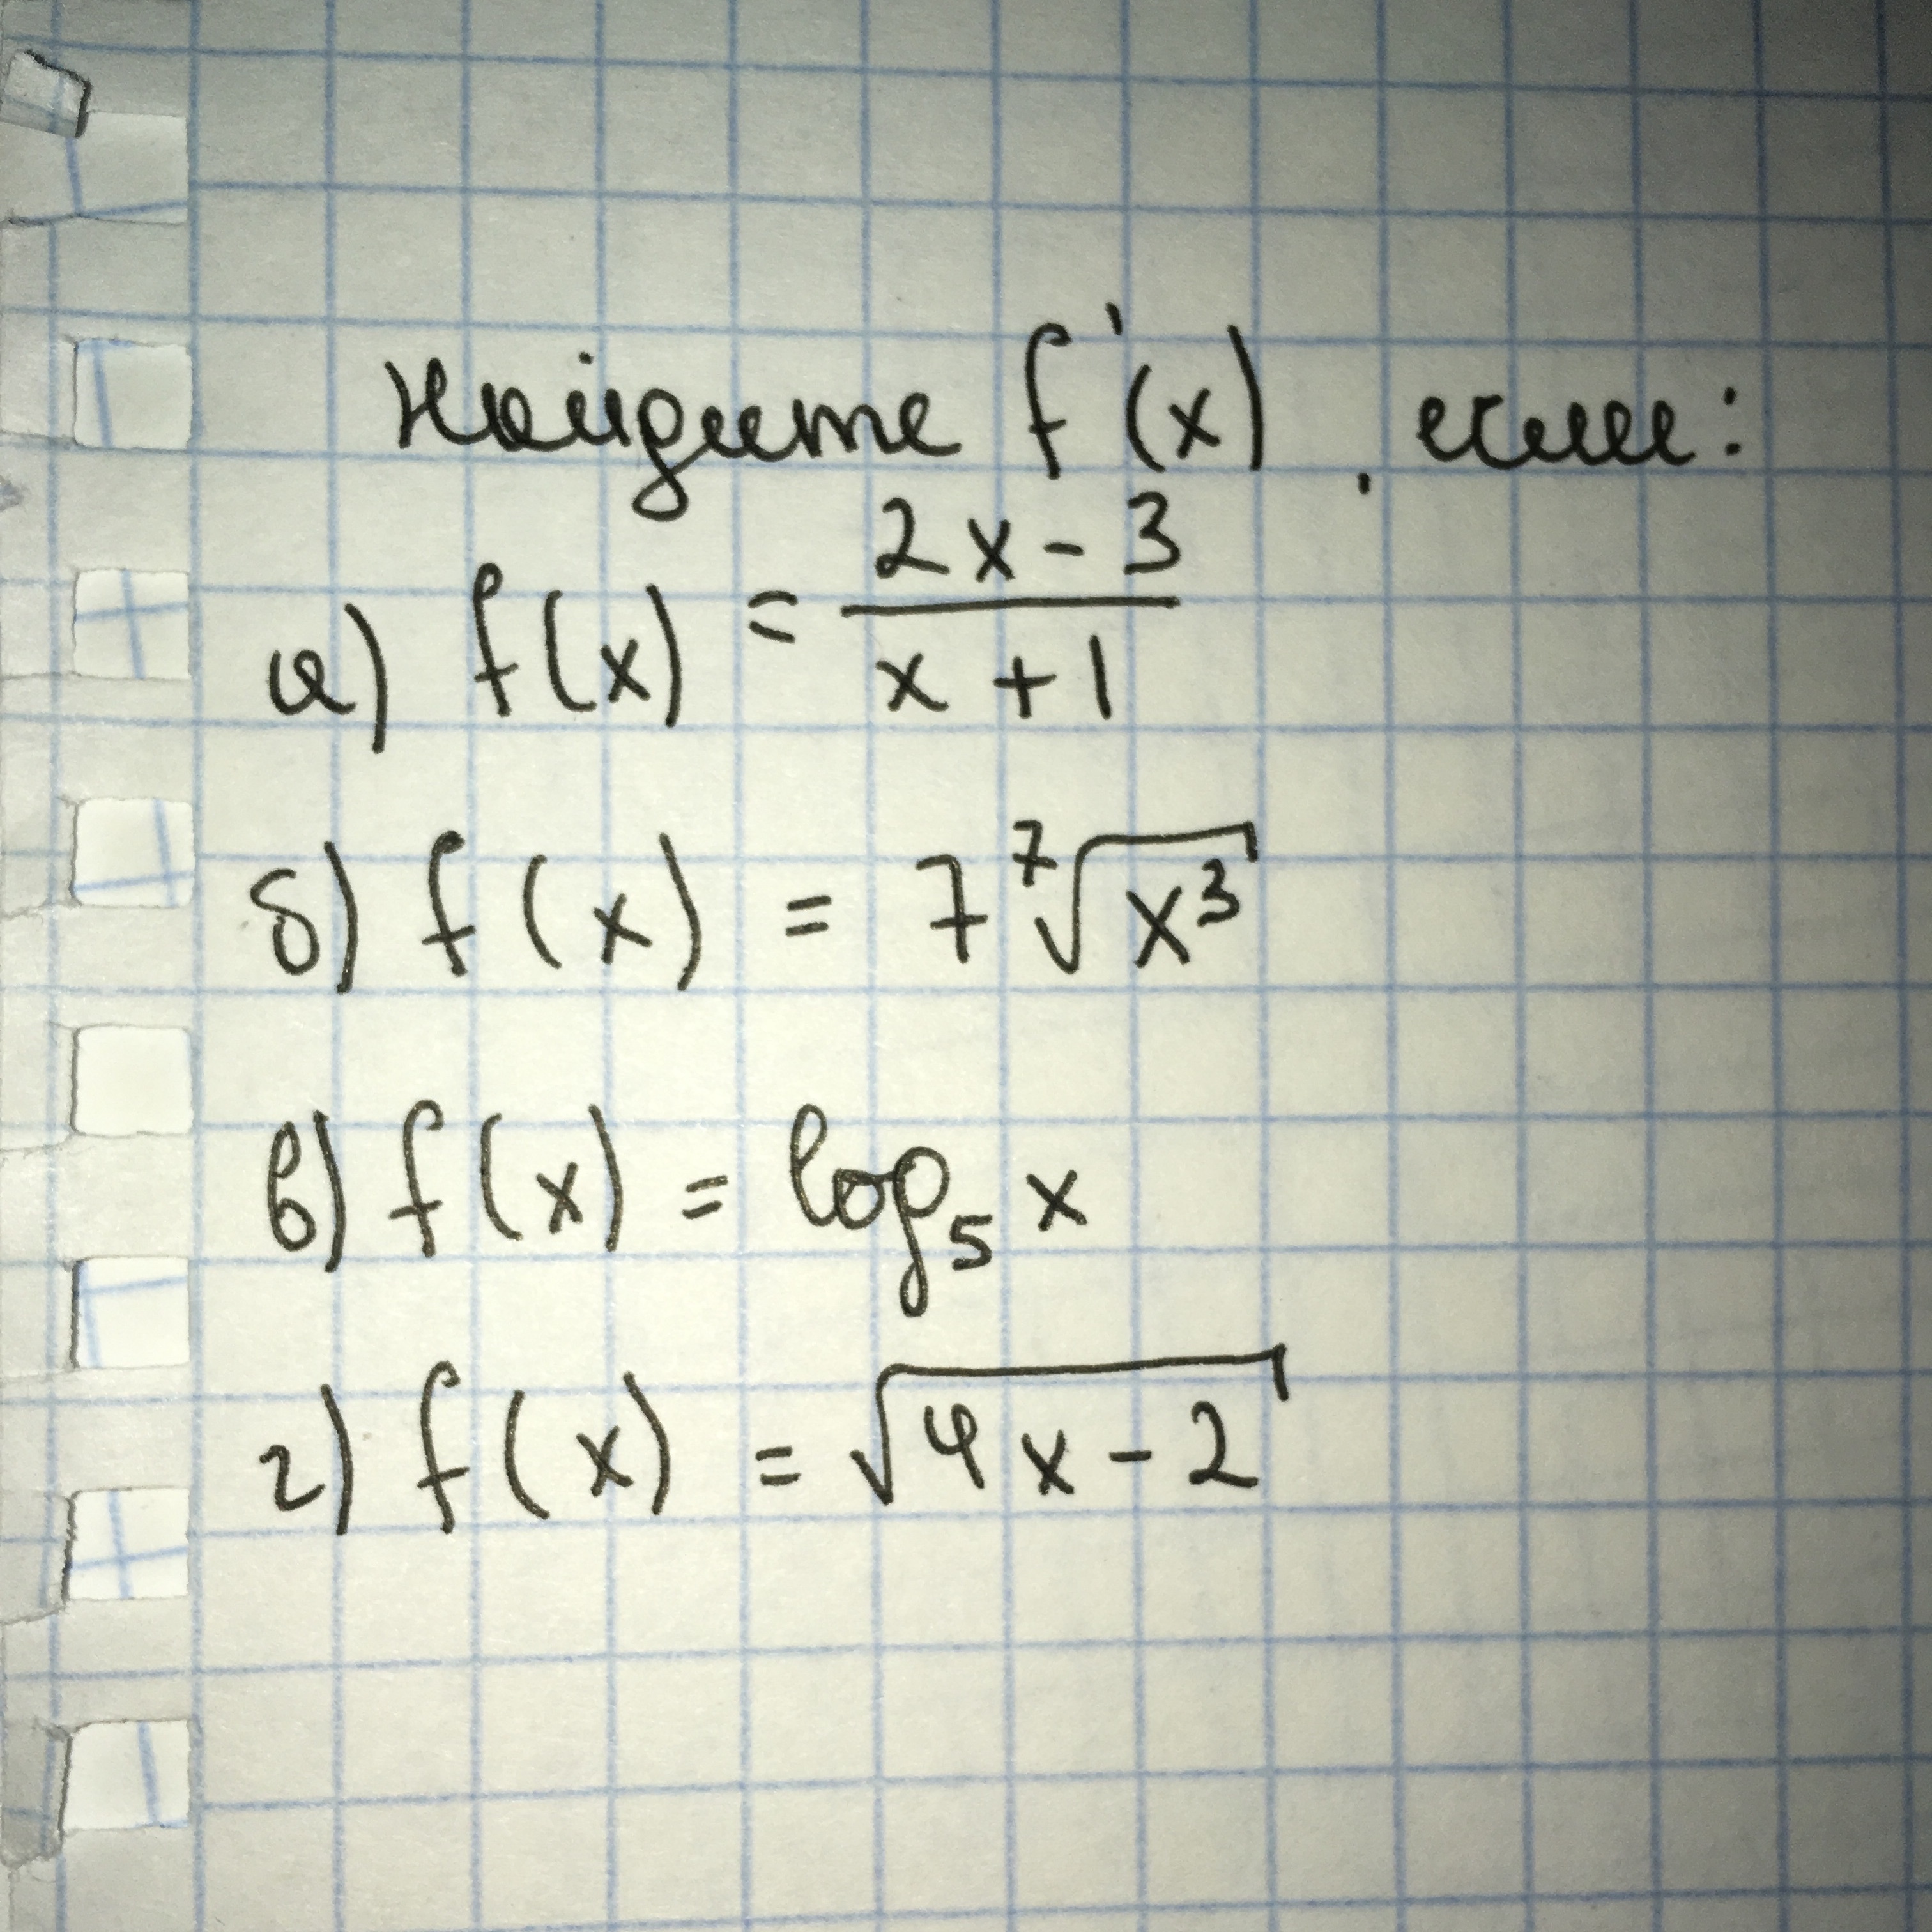 найдите f'(x), если:
а) f(x) = \frac{2x-3}{x+1}
б) f(x) = 7\sqrt[7]{x^3}
в) f(x) = log₅ x
г) f(x) = \sqrt{4x-2}